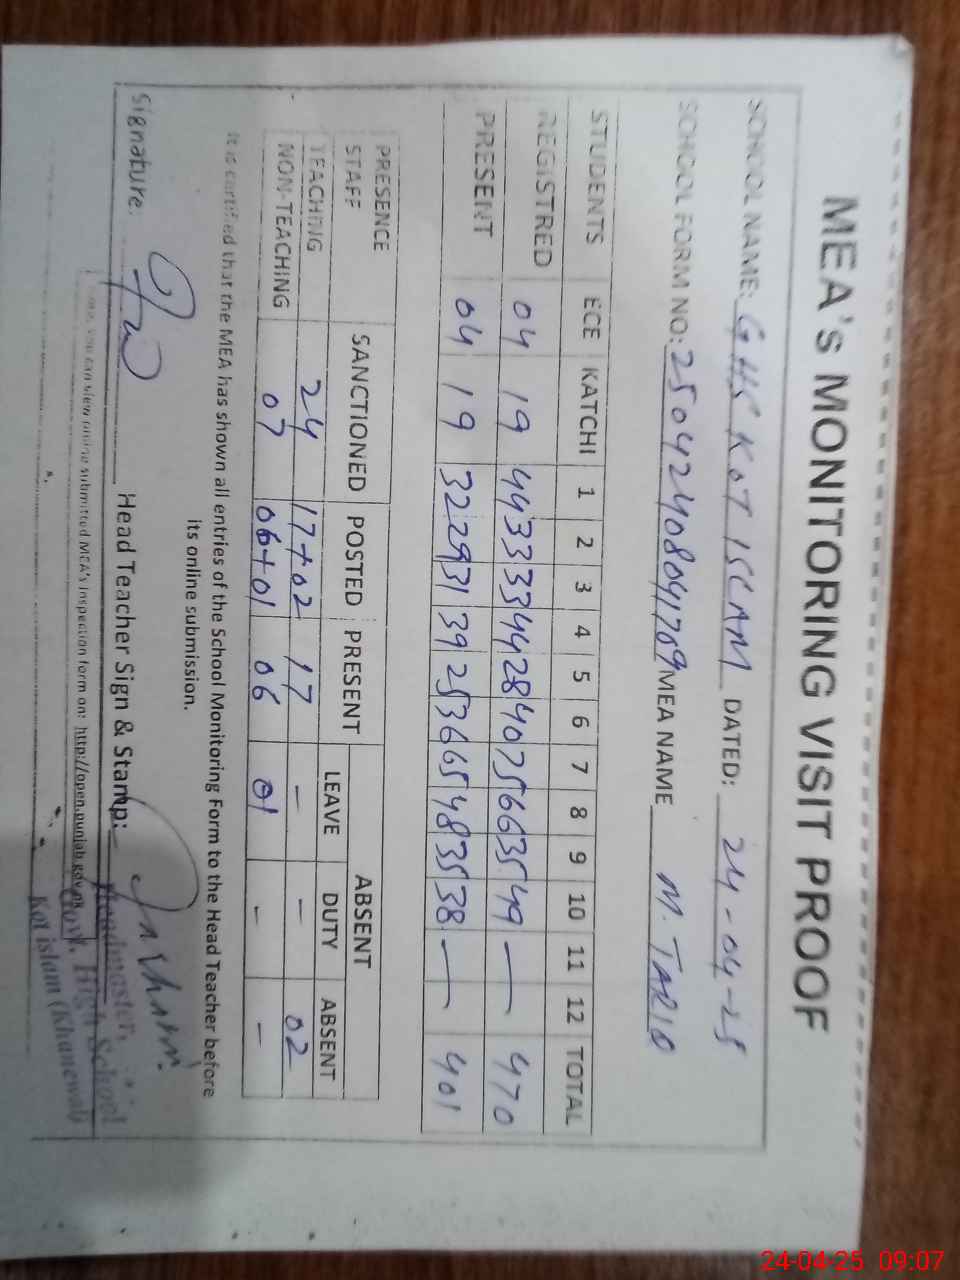 MEA's MONITORING VISIT PROOF
SCHOOL NAME: GHS KOT ISLAM DATED: 24-04-25
SCHOOL FORM NO: 25042408041709 MEA NAME M. TARIQ
STUDENTS ECE KATCHI 1 2 3 4 5 6 7 8 9 10 11 12 TOTAL
REGISTRED 04 19 44 33 33 44 28 40 75 66 35 49 — 470
PRESENT 04 19 32 29 31 39 25 36 65 48 35 38 — 401
PRESENCE STAFF SANCTIONED POSTED PRESENT ABSENT
LEAVE DUTY ABSENT
TEACHING 24 17+02 17 - - 02
NON-TEACHING 07 06+01 06 01 - -
It is certified that the MEA has shown all entries of the School Monitoring Form to the Head Teacher before
its online submission.
Signature: Head Teacher Sign & Stamp:
Headmaster,
you can view online submitted MEA's inspection form on: http://open.punjab.gov.pk
Govt. High School
Kot islam (Khanewal)
24-04-25 09:07